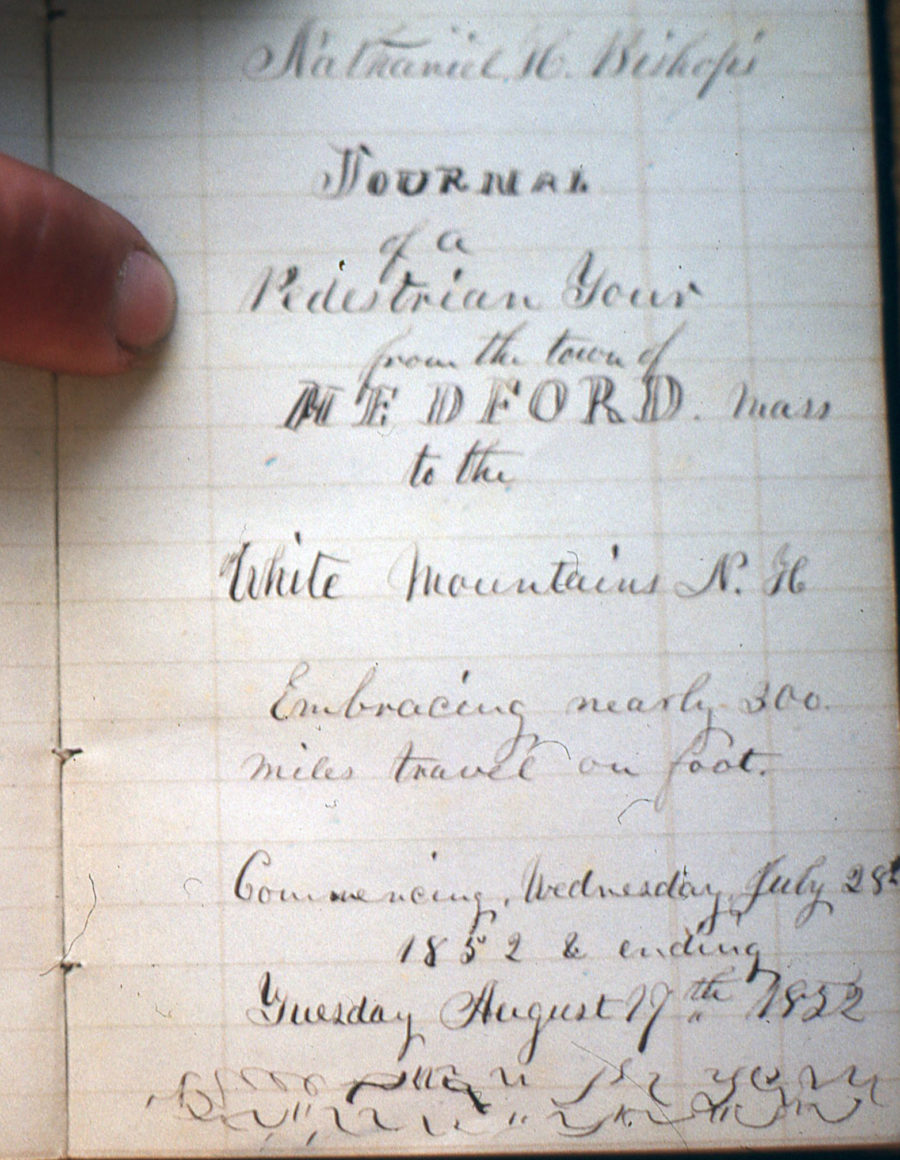 Nathaniel H. Bishop's
JOURNAL
of a
Pedestrian Tour
from the town of
MEDFORD. Mass
to the
White Mountains N. H
Embracing nearly 300
miles travel on foot.
Commencing, Wednesday, July 28th
1852 & ending
Tuesday August 17th 1852